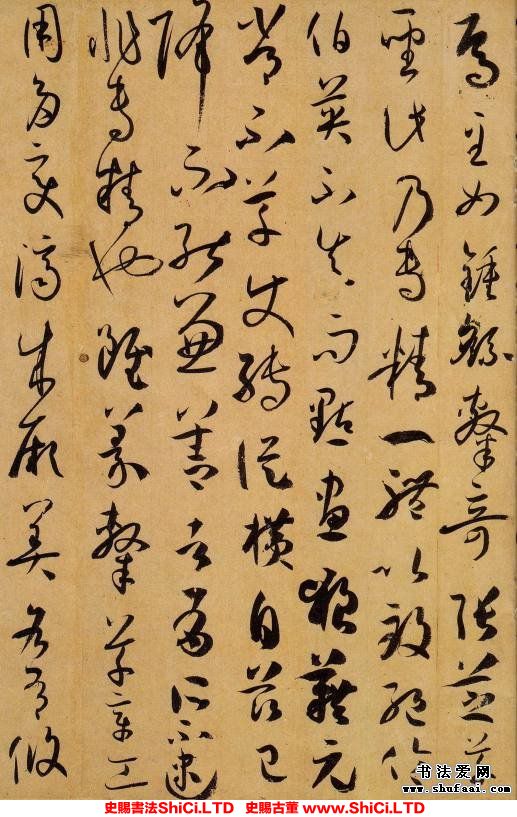 焉至如鍾繇隸奇張芝草
聖此乃專精一體以致絕倫
伯英不真而點畫狼藉元
常不草使轉縱橫自茲已
降不能兼善者有所不逮
非專精也雖篆隸草章工
用多變濟成厥美各有攸
书法爱网
www.shufaai.com
史賜書法ShiCi.LTD 史賜古董 www.ShiCi.LTD